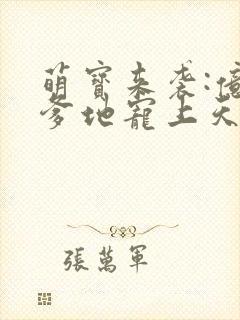 萌寶來襲:億
爹地寵上天
張萬軍